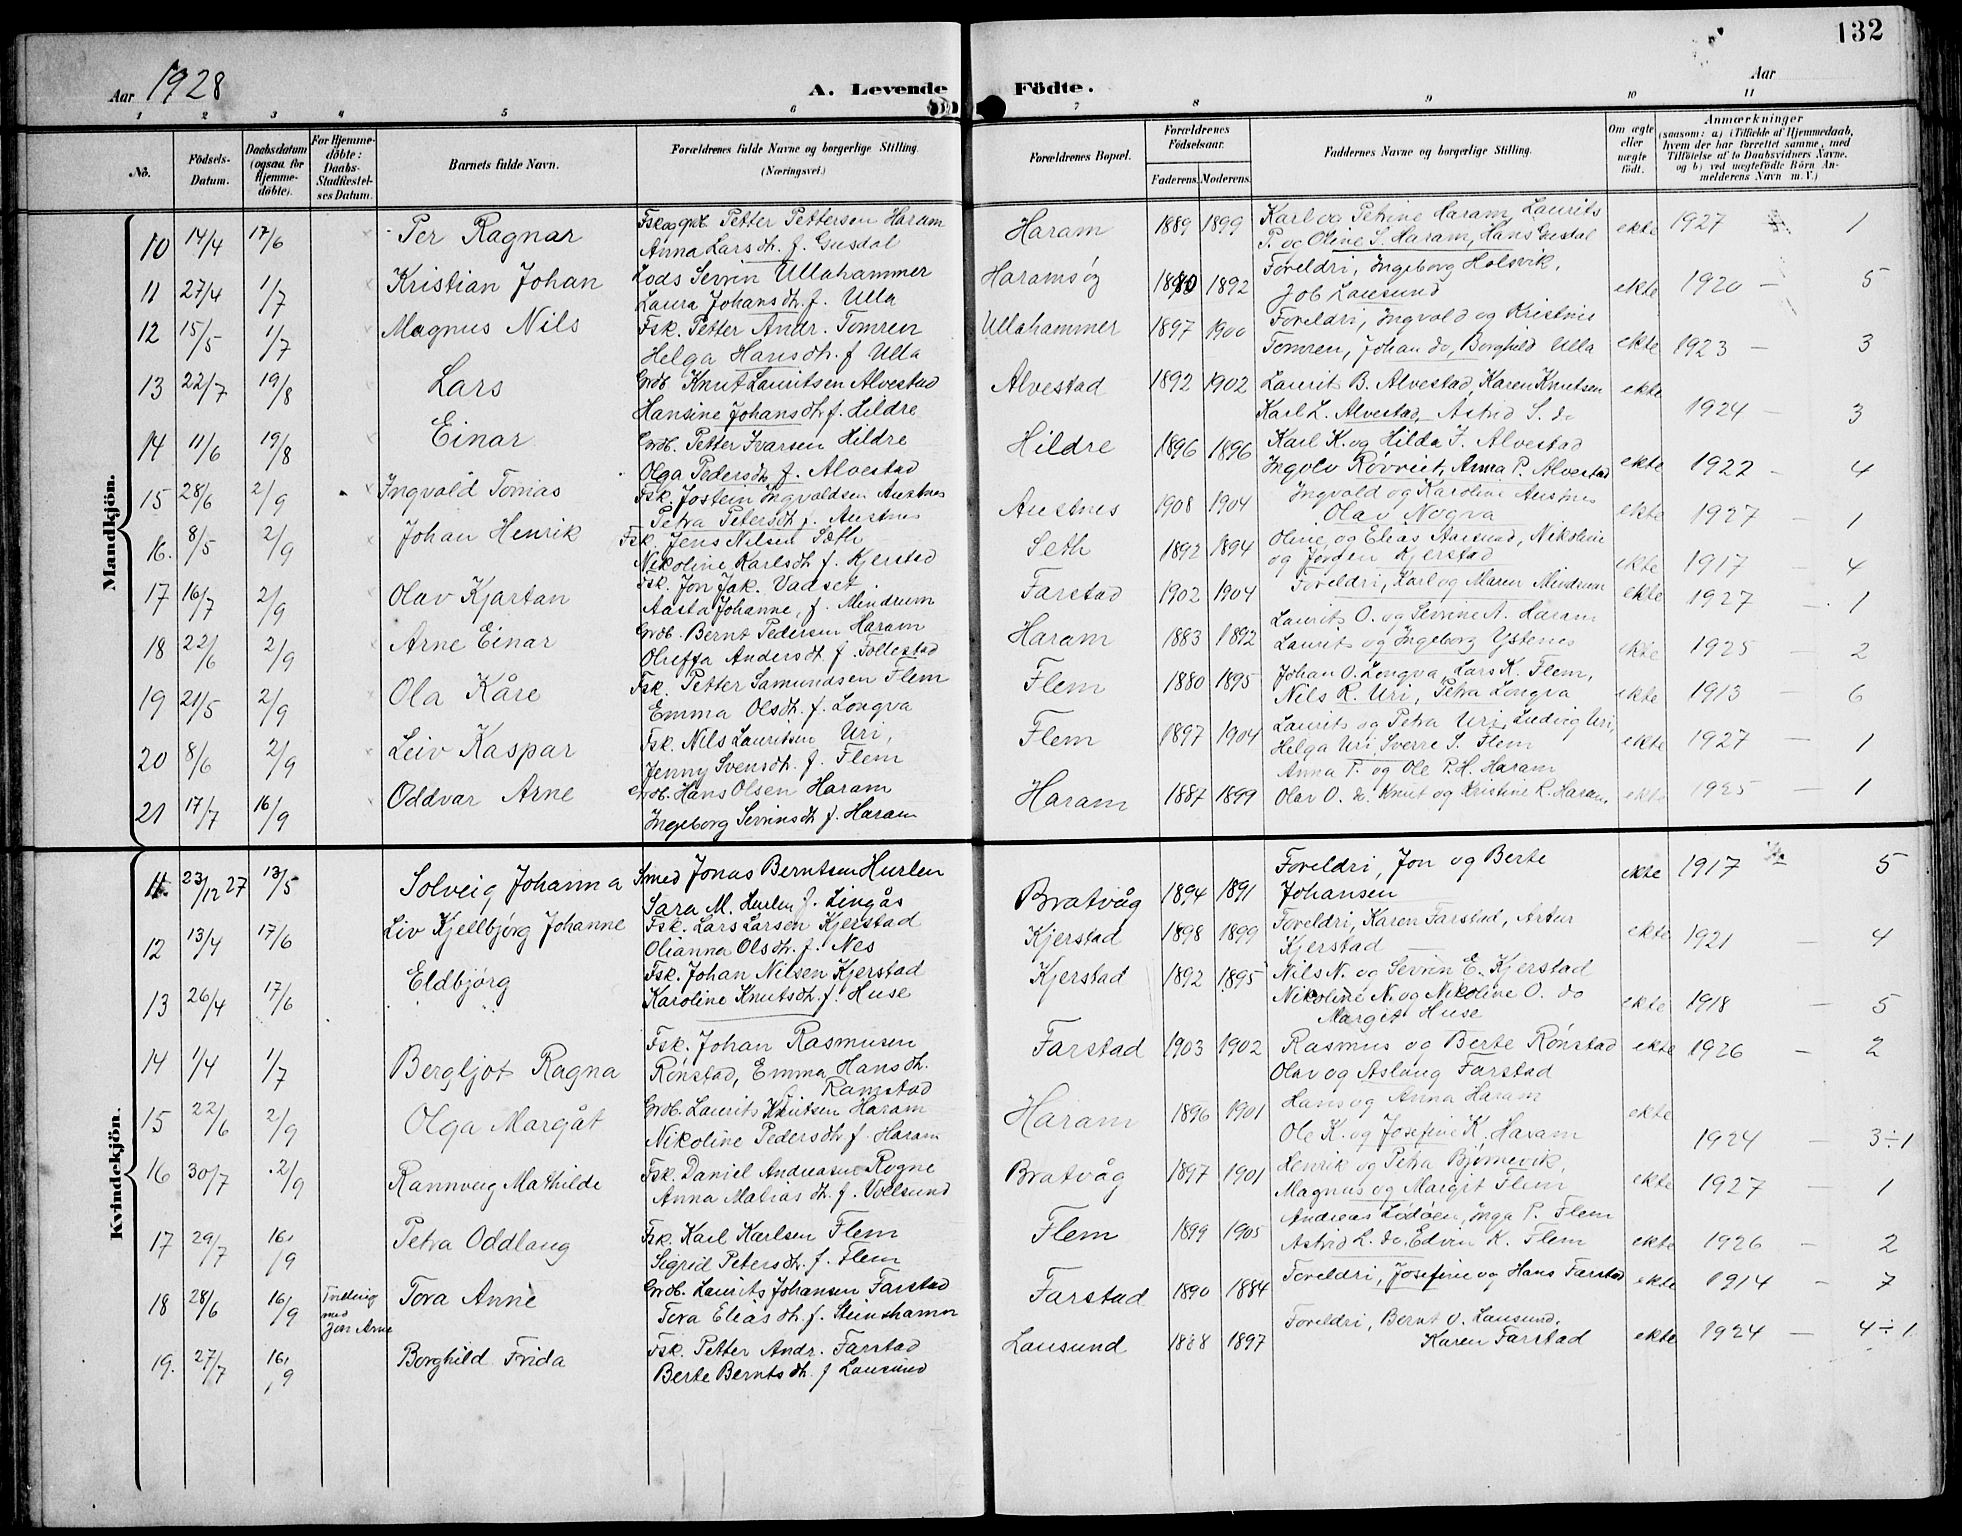 132
Aar 1928
A. Levende Födte.
Aar
1 2 3 4 5 6 7 8 9 10 11
No.
Födsels-Datum.
Daabsdatum (ogsaa for Hjemme-döbte).
For Hjemme-döbte: Daabs-Stadfæstel-ses Datum.
Barnets fulde Navn.
Forældrenes fulde Navne og borgerlige Stilling. (Næringsvei.)
Forældrenes Bopæl.
Forældrenes Födselsaar.
Faderens. Moderens.
Faddernes Navne og borgerlige Stilling.
Om ægte eller uægte födt.
Anmærkninger
(saasom: a) i Tilfælde af Hjemmedaab, hvem der har forrettet samme, med Tilföielse af to Daabsvidners Navne, og b) ved uægtefödte Börn An-melderens Navn m. V.)
Mandkjön.
10 14/4 17/6 Per Ragnar Petter Pettersen Haram Haram 1889 1899 Karl og Petrine Haram, Laurits ekte 1927 1
Anna Larsdtr. f. Gusdal P. og Oline S. Haram, Hans Gusdal
11 27/4 1/7 Kristian Johan Lods Servin Ullahammer Haramsøy 1892 Foreldri, Ingeborg Holsvik, ekte 1920 – 5
Laura Johansdtr. f. Ulla Job Lausund
12 15/5 1/7 Magnus Nils Fsk. Petter Andr. Tomren Ullahammer 1897 1900 Foreldri, Ingvald og Kristine ekte 1923 – 3
Helga Hansdtr. f Ulla Tomren, Johan do, Borghild Ulla
13 22/7 19/8 Lars Grdb. Knut Lauritsen Alvestad Alvestad 1892 1902 Laurits B. Alvestad, Karen Knutsen ekte 1924 – 3
Hansine Johansdtr. f. Hildre Karl L. Alvestad, Astrid S. do
14 11/6 19/8 Einar Grdb. Petter Ivarsen Hildre Hildre 1896 1896 Karl K. og Hilda I. Alvestad ekte 1922 – 4
Olga Pedersdtr. f. Alvestad Ingolv Røvreit, Anna P. Alvestad
15 28/6 2/9 Ingvald Tomas Fsk. Jostein Ingvaldsen Austnes Austnes 1908 1904 Ingvald og Karoline Austnes ekte 1927 – 1
Petra Petersdtr. f. Austnes Olav Nogva
16. 8/5 2/9 Johan Henrik Fsk. Jens Nilsen Sæth Seth 1892 1894 Oline og Elias Aarsund, Nikoline ekte 1917 – 4
Nikoline Karlsdtr f. Kjerstad og Jørgen Kjerstad
17 16/7 2/9 Olav Kjartan Fsk. Jon Jak. Vadset Farstad 1902 1904 Foreldri, Karl og Maren Mindrum ekte 1927 – 1
Aasta Johanne, f. Mindrum
18 22/6 2/9 Arne Einar Grdb. Bernt Pedersen Haram Haram 1883 1892 Laurits O. og Sevrine A. Haram ekte 1925 – 2
Oleffa Andersdtr. f. Follestad Laurits og Ingeborg Ystenes
19 21/5 2/9 Ola Kåre Fsk. Petter Samundsen Flem Flem 1880 1895 Johan O. Longva, Lars K. Flem, ekte 1913 – 6
Emma Olsdtr. f. Longva Nils R. Uri, Petra Longva
20 8/6 2/9 Leiv Kaspar Fsk. Nils Lauritsen Uri, Flem 1897 1904 Laurits og Petra Uri, Ludvig Uri, ekte 1927 – 1
Jenny Svensdtr. f. Flem Helga Uri, Sverre S. Flem
21 17/7 16/9 Oddvar Arne Grdb. Hans Olsen Haram Haram 1887 1899 Anna P. og Ole P.H. Haram ekte 1925 – 1
Ingeborg Sevrinsdtr f. Haram Olav O. do. Knut og Kristine R. Haram
Kvindekjön.
11. 23/12 27 13/5 Solveig Johanna Smed Jonas Berntsen Hurlen Bratvåg 1894 1891 Foreldri, Jon og Berte ekte 1917 – 5
Sara M. Hurlen f. Lingås Johansen
12 13/4 17/6 Liv Kjellbjørg Johanne Fsk. Lars Larsen Kjerstad Kjerstad 1898 1899 Foreldri, Karen Farstad, Artur ekte 1921 – 4
Olianna Olsdtr. f. Nes Kjerstad
13 26/4 17/6 Eldbjørg Fsk. Johan Nilsen Kjerstad Kjerstad 1892 1895 Nils N. og Sevrin E. Kjerstad ekte 1918 – 5
Karoline Knutsdtr. f. Huse Nikoline N. og Nikoline O. do
Margit Huse
14 1/4 1/7 Bergljot Ragna Fsk. Johan Rasmusen Farstad 1903 1902 Rasmus og Berte Rønstad ekte 1926 – 2
Rønstad, Emma Hansdtr. Olav og Aslaug Farstad
Ramstad
15 22/6 2/9 Olga Margåt Grdb. Laurits Knutsen Haram Haram 1896 1901 Hans og Anna Haram ekte 1924 – 3÷1
Nikoline Pedersdtr f. Haram Ole K. og Josefine K. Haram
16 30/7 2/9 Rannveig Mathilde Fsk. Daniel Andreasen Rogne Bratvåg 1897 1901 Henrik og Petra Bjørnevik, ekte 1927 – 1
Anna Matiasdtr. f. Vollsund Magnus og Margit Flem
17 29/7 16/9 Petra Oddlaug Fsk. Karl Karlsen Flem Flem 1899 1905 Andreas Lødøen, Inga P. Flem ekte 1926 – 2
Sigrid Petersdtr. f. Flem Astrid L. do. Edvin K. Flem
18 28/6 16/9 Tvilling med Jon Arne Tora Anne Grdb. Laurits Johansen Farstad Farstad 1890 1884 Foreldri, Josefine og Hans Farstad ekte 1914 – 7
Tora Eliasdtr. f. Steinshamn
19. 27/7 16/9 Borghild Frida Fsk. Petter Andr. Farstad Lausund 1888 1897 Foreldri, Bernt O. Lausund, ekte 1924 – 4÷1
Berte Berntsdtr. f Lausund Karen Farstad